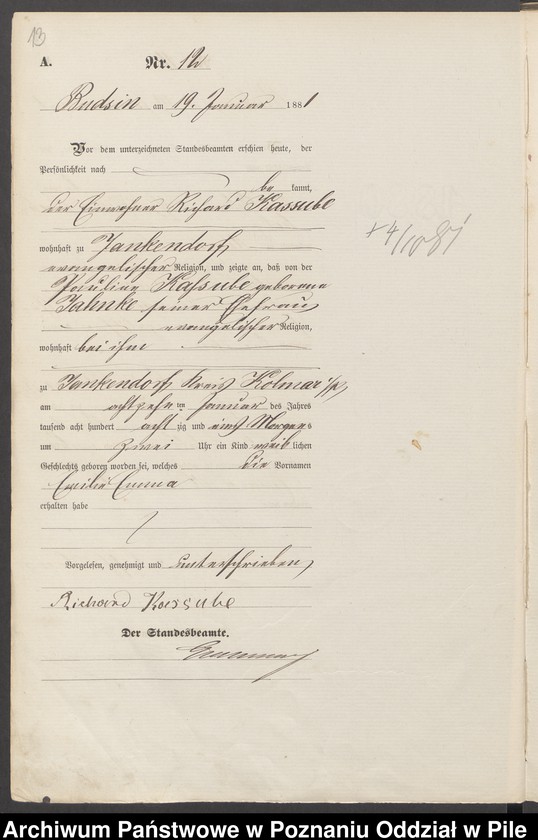 13
A.
Nr. 12
Budsin am 19. Januar 1881
Vor dem unterzeichneten Standesbeamten erschien heute, der
Persönlichkeit nach
be kannt,
der Einwohner Richard Kassube
wohnhaft zu Jankendorf
evangelischer Religion, und zeigte an, daß von der
Pauline Kassube geborene
Jahnke seiner Ehefrau
evangelischer Religion,
wohnhaft bei ihm
zu Jankendorf Kreis Kolmar i/P
am achtzehnten Januar des Jahres
tausend acht hundert acht zig und eins Morgens
um zwei Uhr ein Kind weiblichen
Geschlechts geboren worden sei, welches die Vornamen
Emilie Emma
erhalten habe
Vorgelesen, genehmigt und unterschrieben
Richard Kassube
Der Standesbeamte.
Archiwum Państwowe w Poznaniu Oddział w Pile